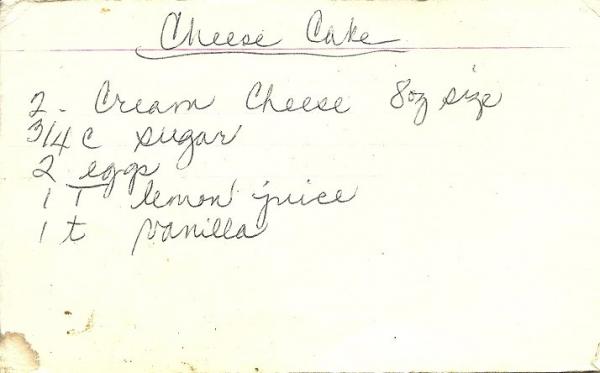 Cheese Cake
2 - Cream Cheese 8oz size
3/4 c sugar
2 eggs
1 T lemon juice
1 t vanilla